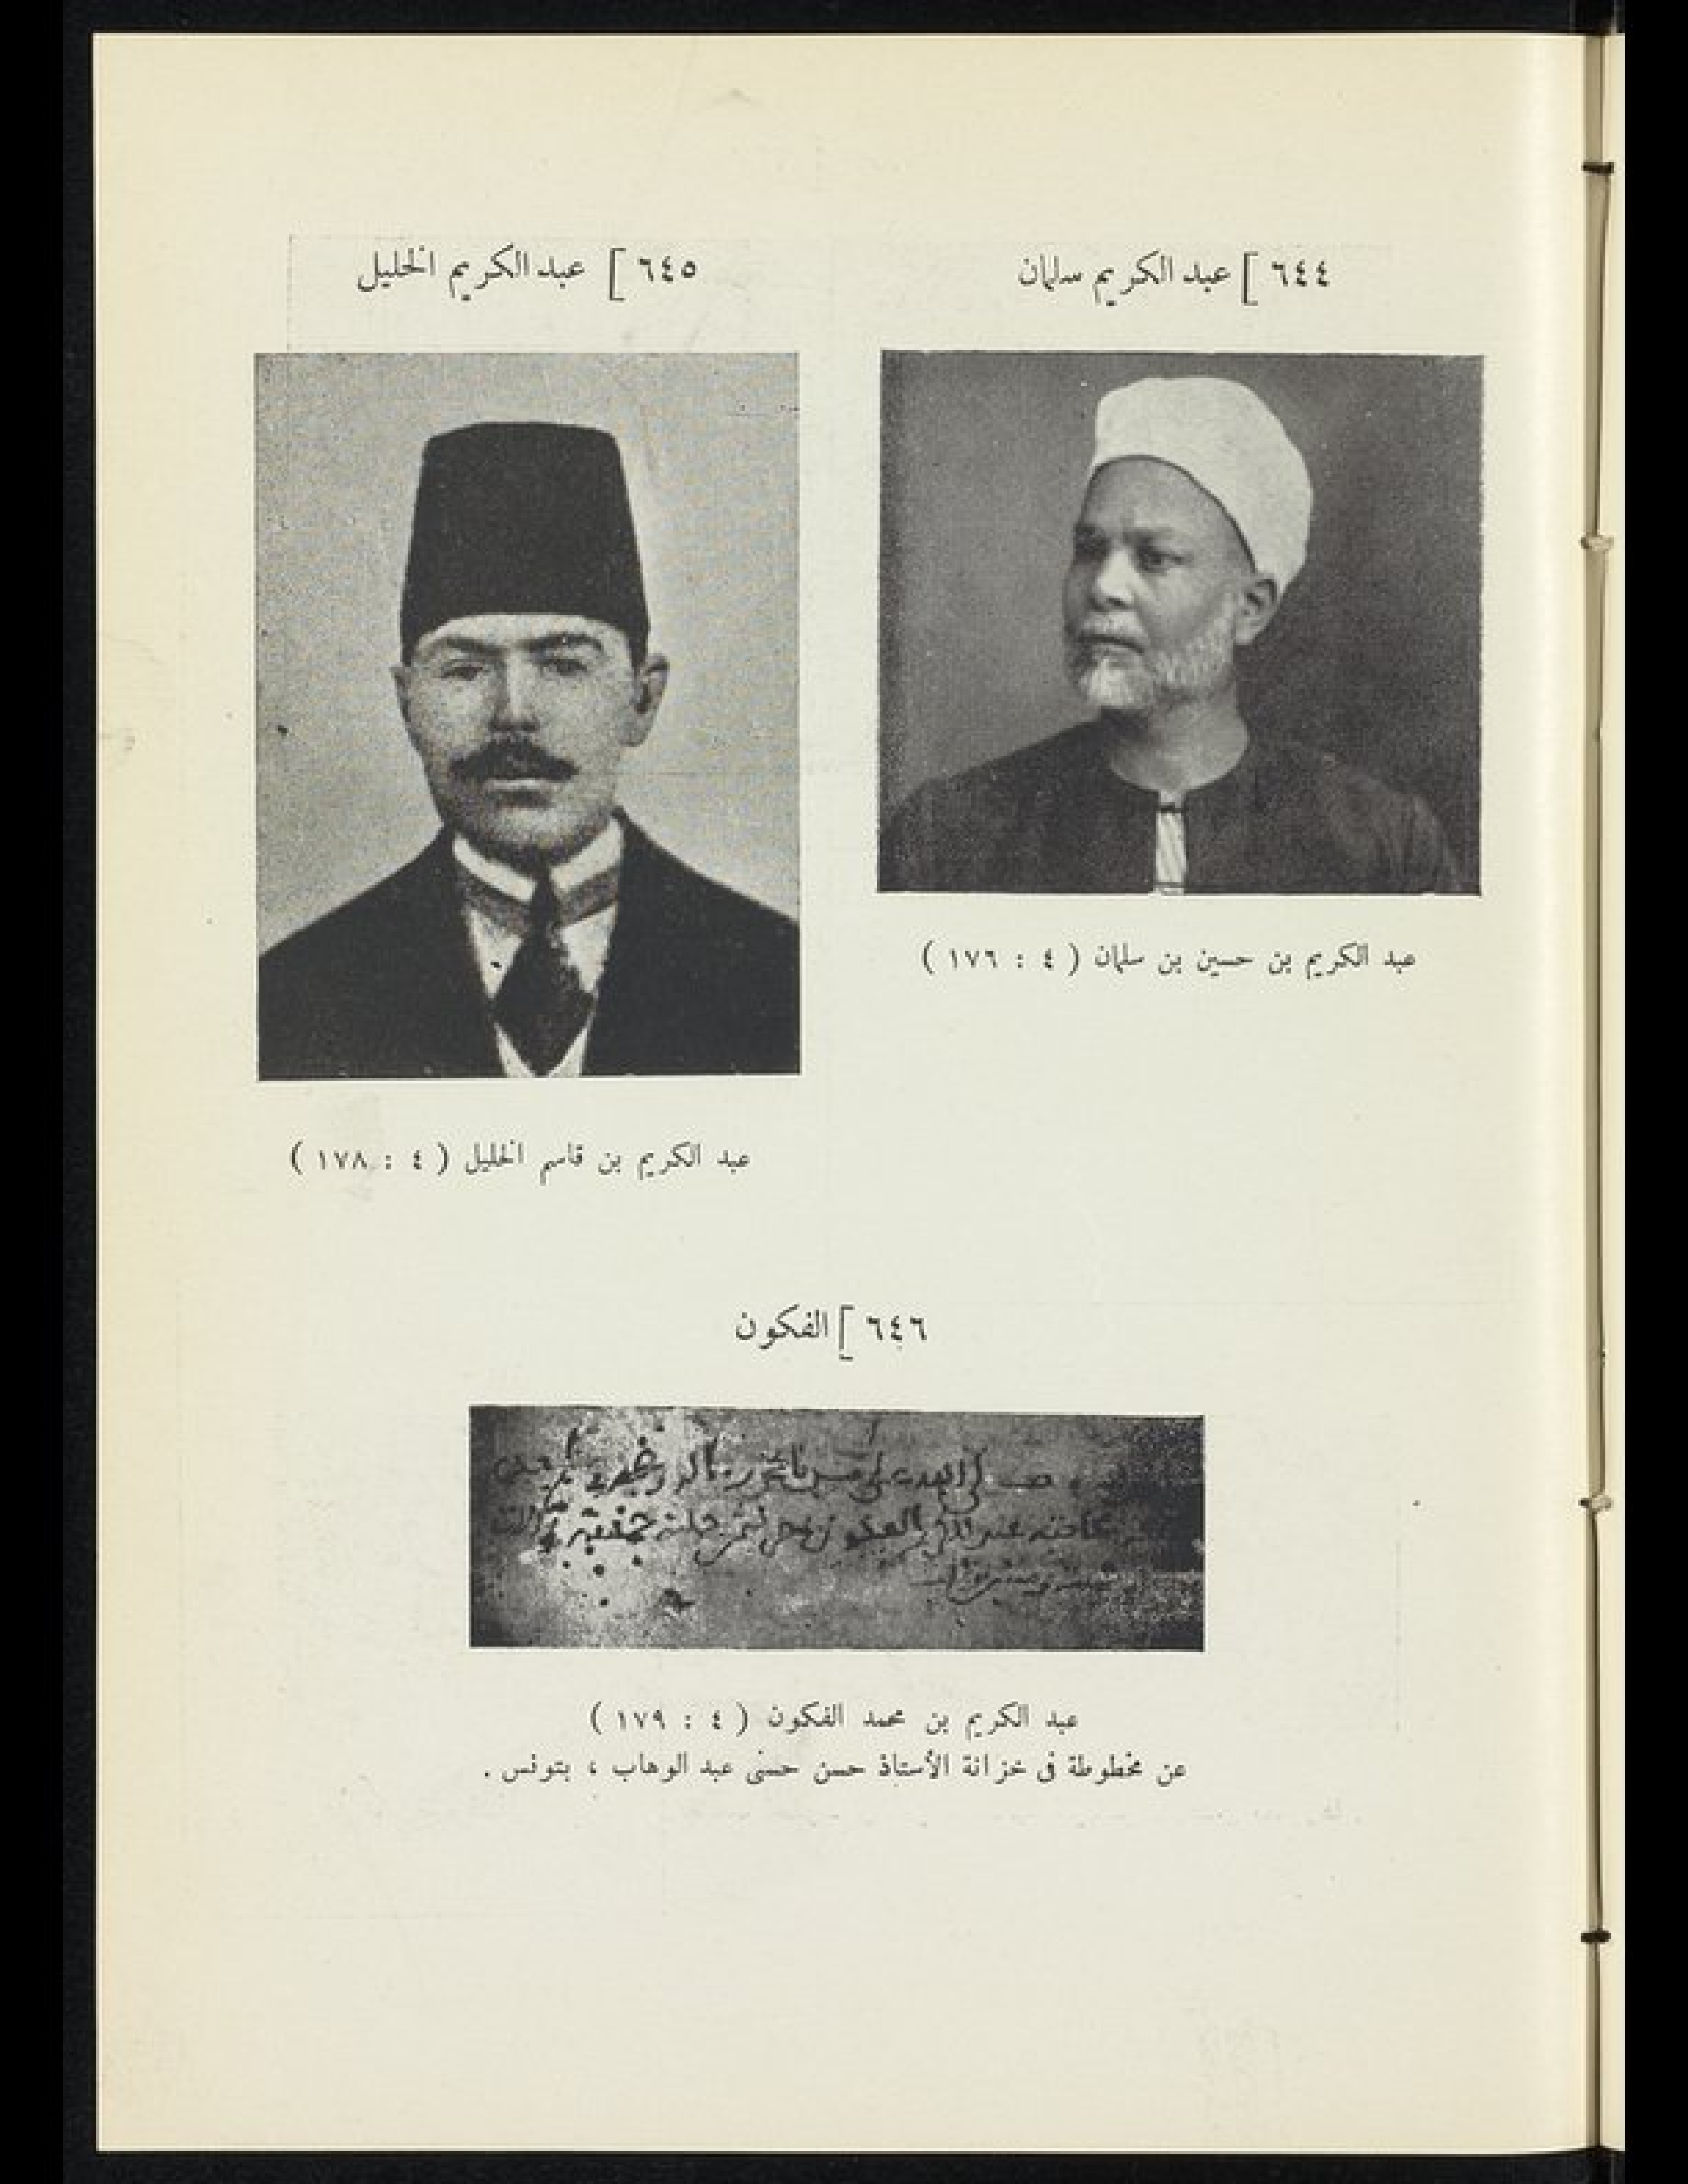 ٦٤٤ [ عبد الكريم سلمان
عبد الكريم بن حسين بن سلمان ( ٤ : ١٧٦ )
٦٤٥ [ عبد الكريم الخليل
عبد الكريم بن قاسم الخليل ( ٤ : ١٧٨ )
٦٤٦ [ الفكون
عبد الكريم بن محمد الفكون ( ٤ : ١٧٩ )
عن مخطوطة في خزانة الأستاذ حسن حسنى عبد الوهاب ، بتونس .